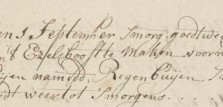 ens September Smorg. goedtwee
t Ezelshooft te Maken voorn
yen namidd. Regen buijen
dt weer tot Smorgens